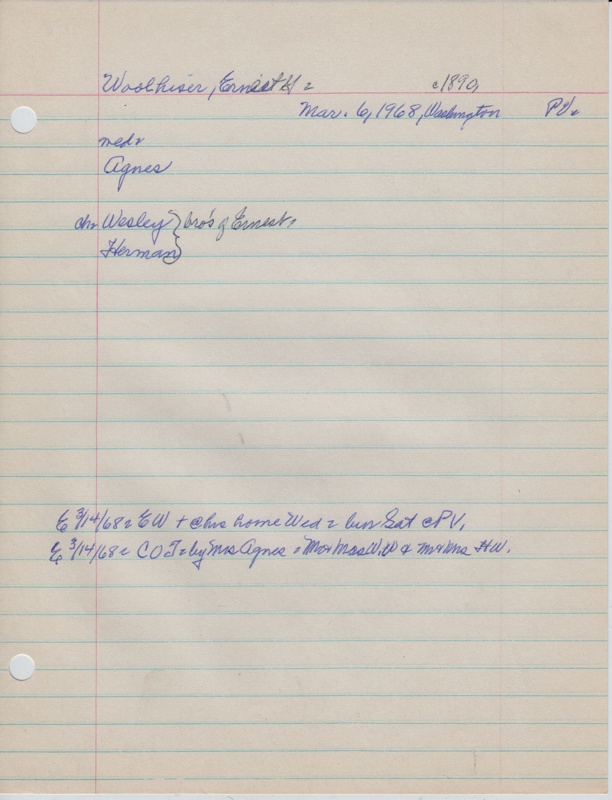 Woolhiser, Ernest H = c1890,
Mar. 6, 1968, Washington PV.
med=
Agnes
chn Wesley } bro's of Ernest,
Herman }
E 3/14/68 = EW + @ his home Wed = bur Sat @ PV,
E 3/14/68 = COT = by Mrs Agnes = Mr + Mrs W.W & Mr + Mrs HW.